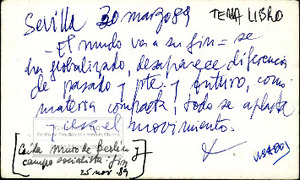 Sevilla 30 marzo 89
TEMA LIBRO
- El mundo va a su fin - se
ha globalizado, desaparece diferencia
de pasado y pte. y futuro, como
materia compacta, todo se aplasta
el movimiento.
Caída muro de Berlín y
campo socialista. fin
25 nov 89